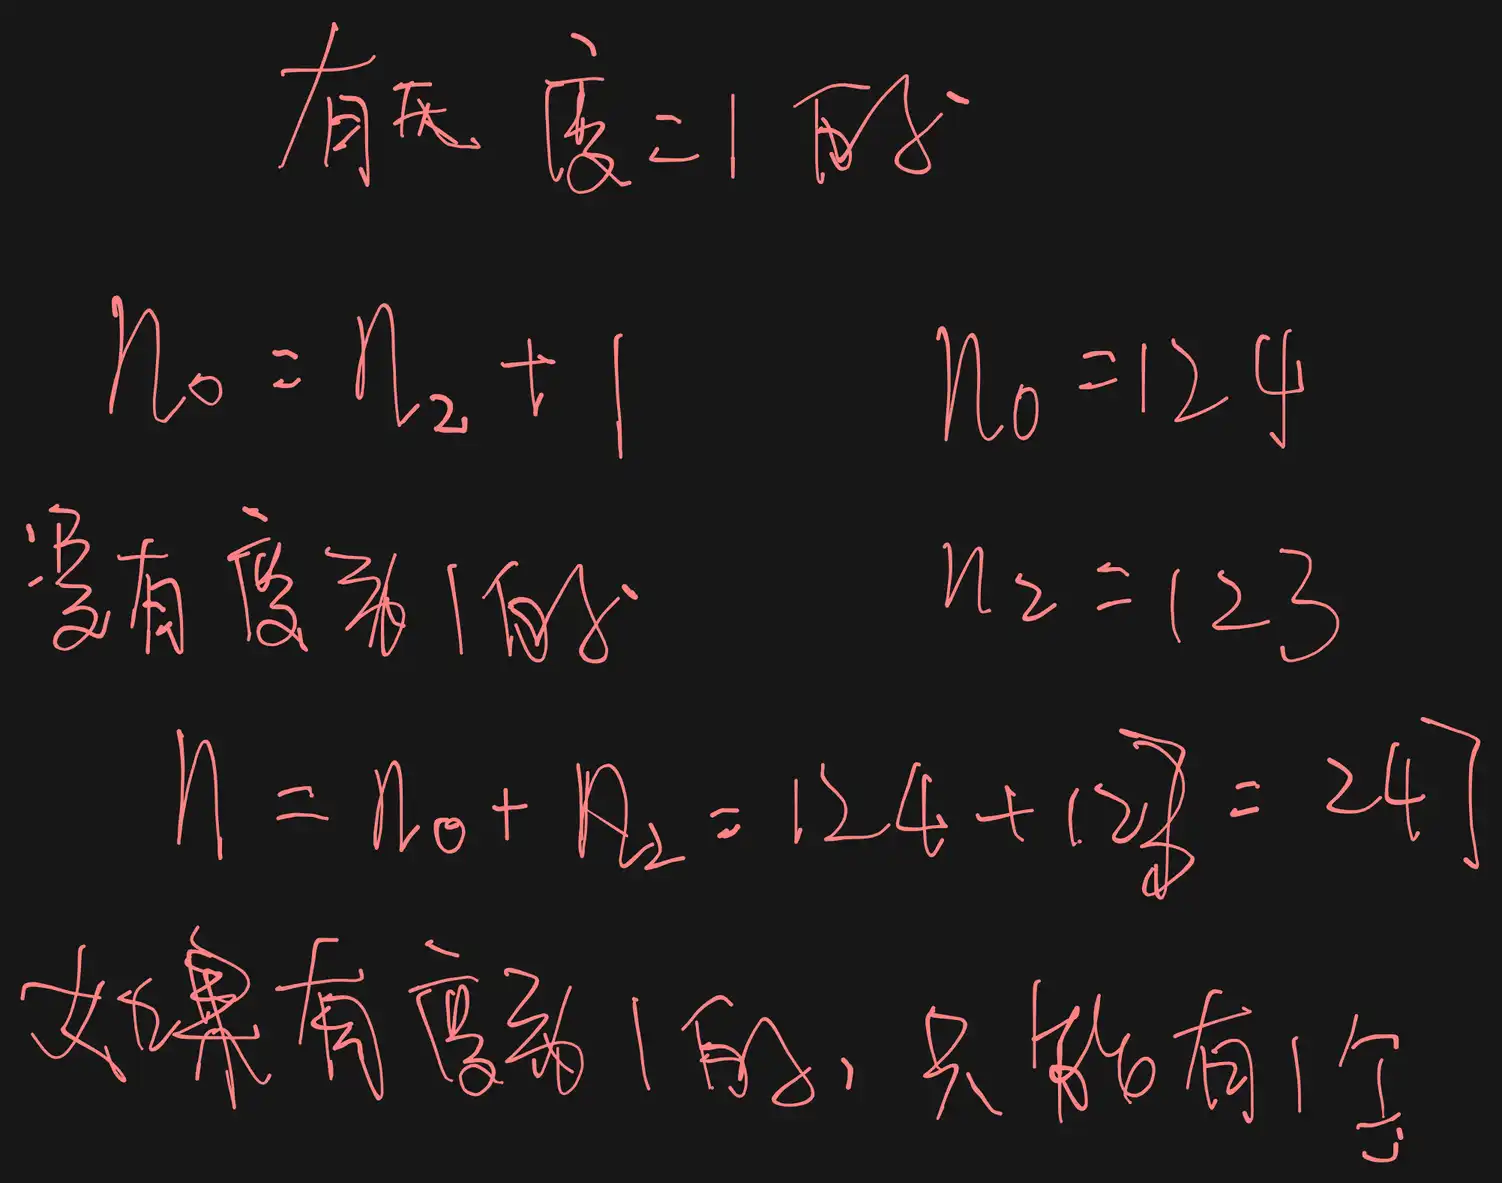 有无 度=1的
n₀=n₂+1 n₀=124
没有度为1的 n₂=123
n=n₀+n₂=124+123=247
如果有度为1的,只能有1个